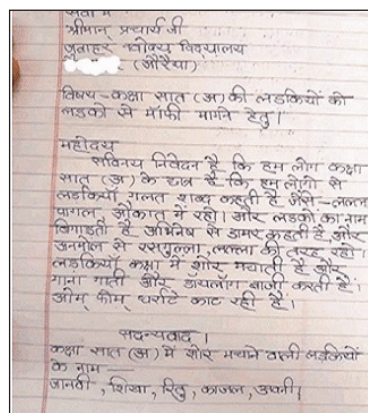 सेवा में
श्रीमान् प्रचार्य जी
जवाहर नवोदय विद्यालय
(औरैया)
विषय - कक्षा सात (अ) की लडकियों को
लडको से माँफी मागने हेतु।
महोदय
सविनय निवेदन है कि हम लोग कक्षा
सात (अ) के छात्र है कि हम लोगो से
लडकियाँ गलत शब्द कहती है जैसे - लल्ला
पागल औकात में रहो। और लडको का नाम
बिगाड़ती है अभिनेष से डामर कहती है, और
अनमोल से रसगुल्ला, लल्ला की तरह रहो।
लडकियाँ कक्षा में शोर मचाती है और
गाना गाती और डायलाग बाजी करती है।
ओम फोम धर्राटे काट रही है।
सदन्यवाद।
कक्षा सात (अ) में शोर मचाने वाली लडकियों
के नाम
जानवी, शिखा, रितु, काजल, अवनी।